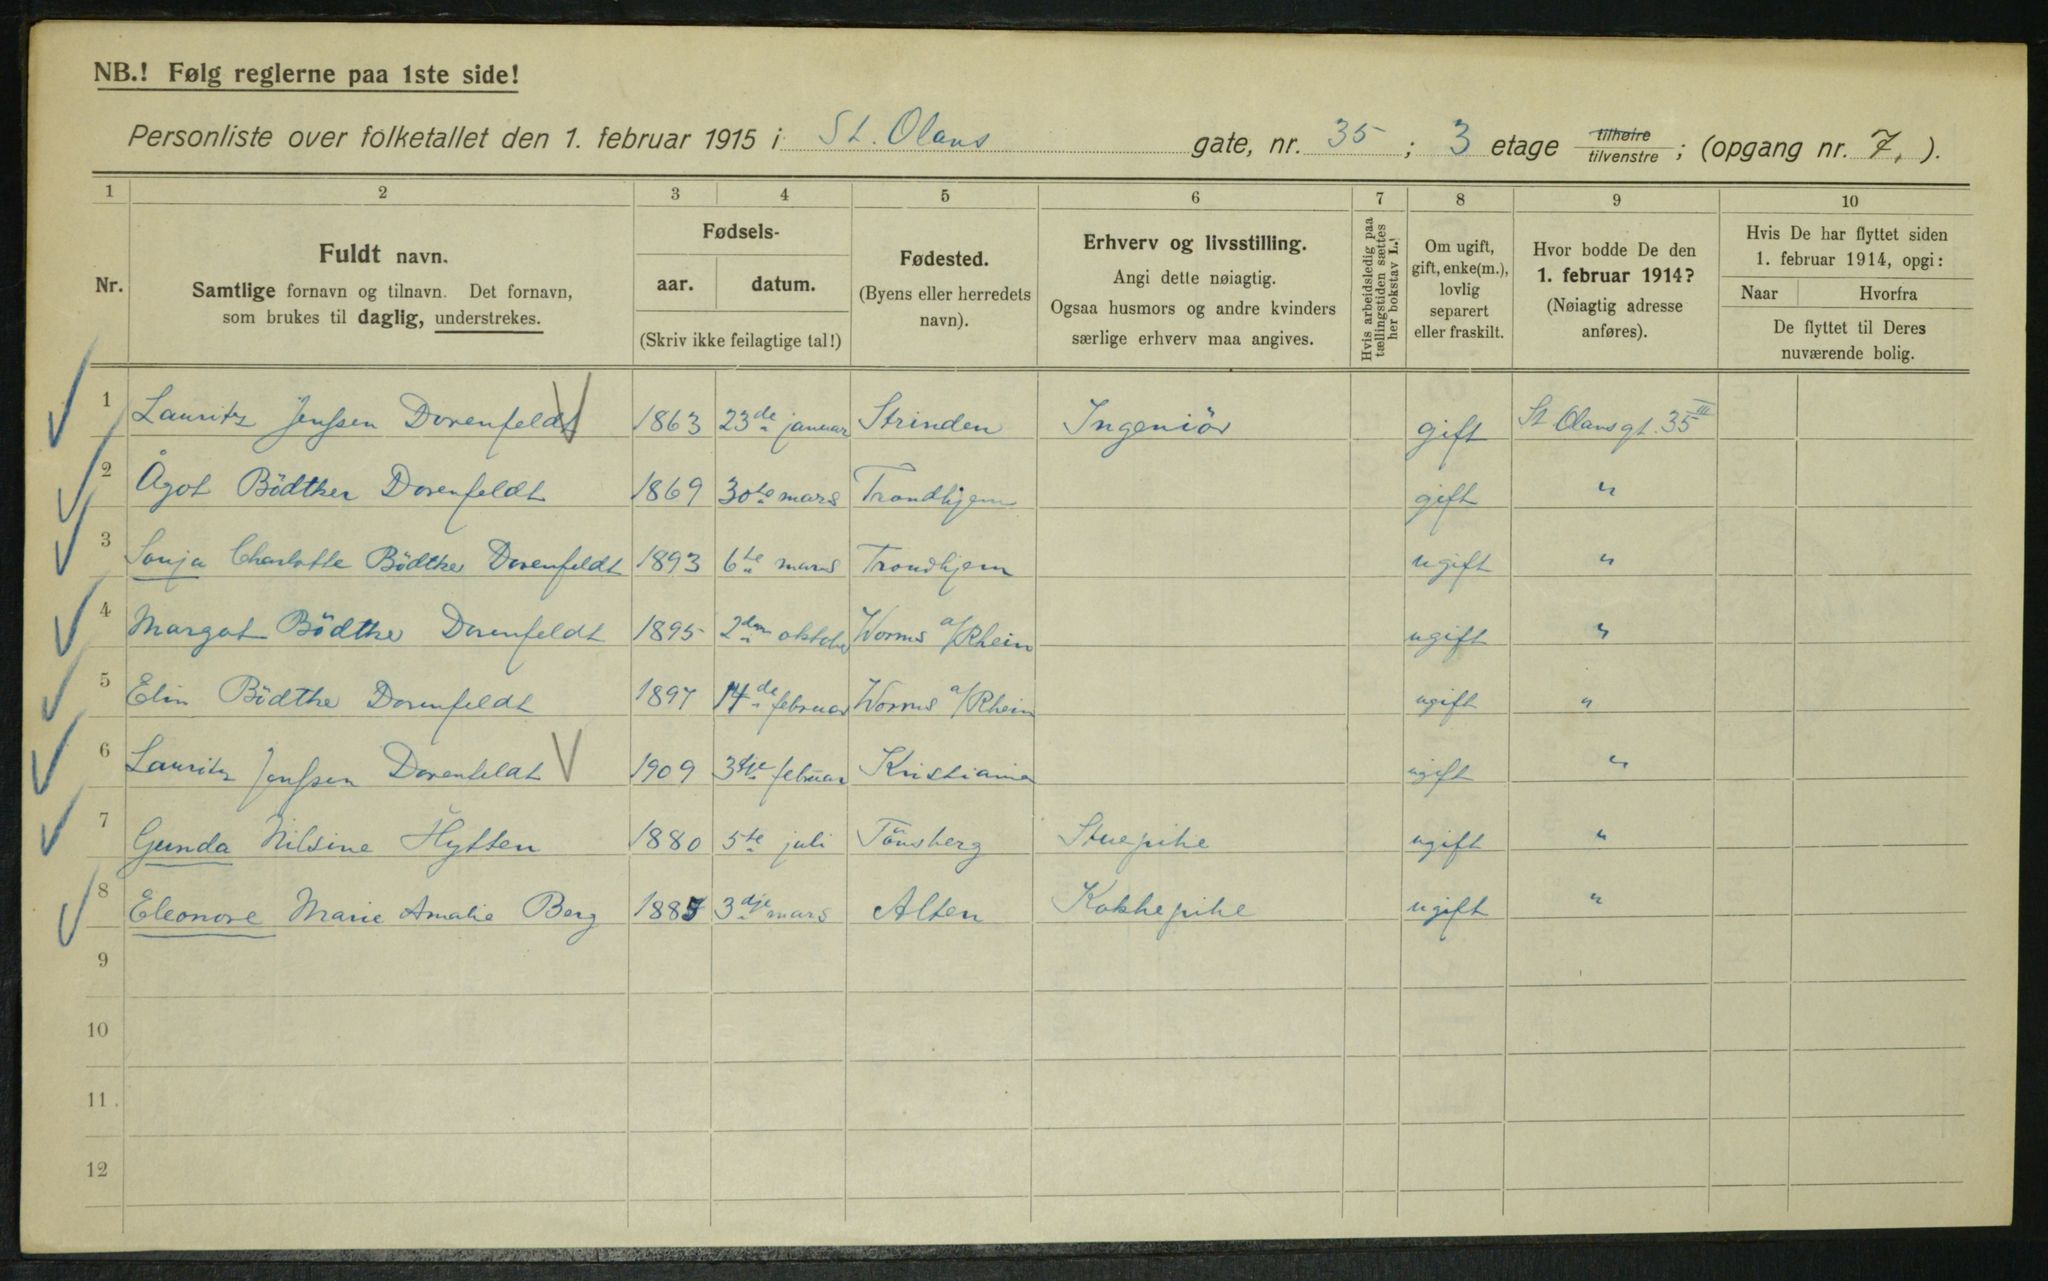 NB.! Følg reglerne paa 1ste side!
Personliste over folketallet den 1. februar 1915 i St. Olavs gate, nr. 35 ; 3 etage tilhøire tilvenstre ; (opgang nr. 7, ).
1 2 3 4 5 6 7 8 9 10
Nr.
Fuldt navn.
Samtlige fornavn og tilnavn. Det fornavn,
som brukes til daglig, understrekes.
Fødsels-
aar. datum.
(Skriv ikke feilagtige tal!)
Fødested.
(Byens eller herredets
navn).
Erhverv og livsstilling.
Angi dette nøiagtig.
Ogsaa husmors og andre kvinders
særlige erhverv maa angives.
Hvis arbeidsledig paa
tællingstiden sættes
her bokstav L.!
Om ugift,
gift, enke(m.),
lovlig
separert
eller fraskilt.
Hvor bodde De den
1. februar 1914?
(Nøiagtig adresse
anføres).
Hvis De har flyttet siden
1. februar 1914, opgi:
Naar Hvorfra
De flyttet til Deres
nuværende bolig.
1 Lauritz Jenssen Dorenfeldt 1863 23de januar Strinden Ingeniör gift St Olavsgt. 35 III
2 Ågot Bödtker Dorenfeldt 1869 30te mars Trondhjem gift "
3 Sonja Charlotte Bödtker Dorenfeldt 1893 6te mars Trondhjem ugift "
4 Margot Bödtker Dorenfeldt 1895 2den oktober Worms a/Rhein ugift "
5 Elin Bödtker Dorenfeldt 1897 14de februar Worms a/Rhein ugift "
6 Lauritz Jenssen Dorenfeldt 1909 3dje februar Kristiania ugift "
7 Gunda Nilsine Hytten 1880 5te juli Tönsberg Stuepike ugift "
8 Eleonore Marie Amalie Berg 1885 3dje mars Alten Kokkepike ugift "
9
10
11
12